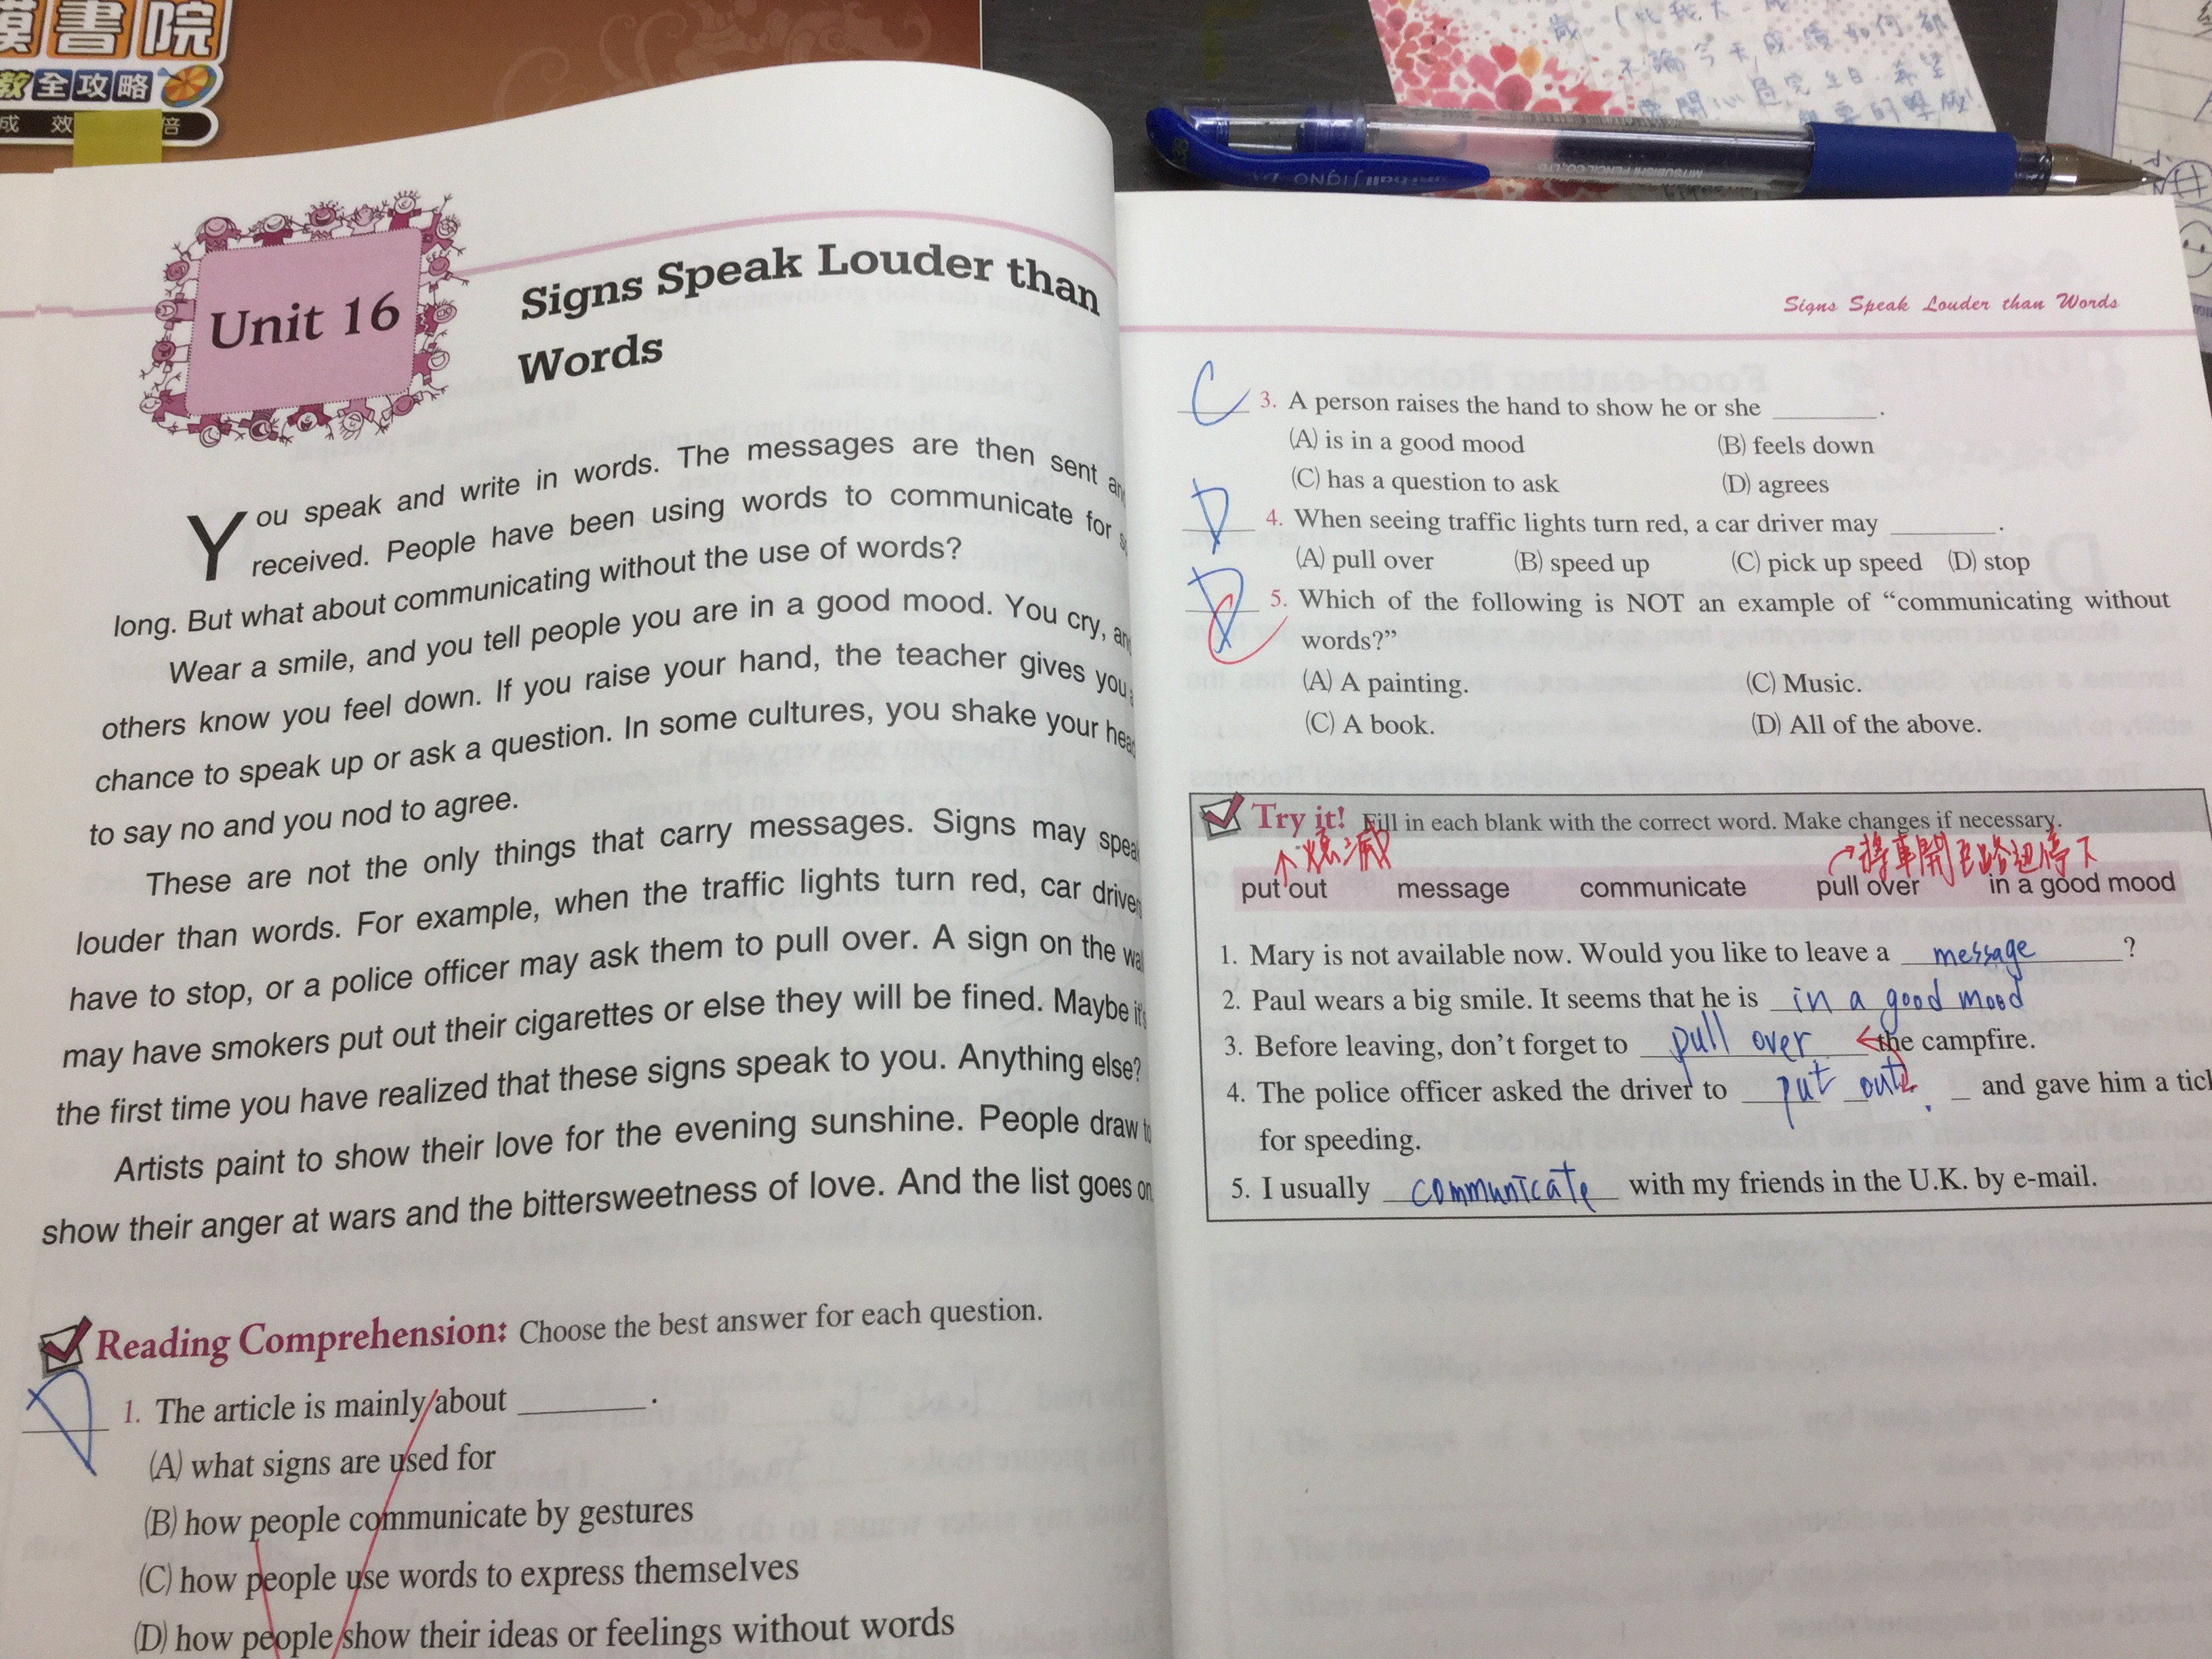 書院
全攻略
成 效 倍
Unit 16
Signs Speak Louder than
Words
You speak and write in words. The messages are then sent
received. People have been using words to communicate for
long. But what about communicating without the use of words?
Wear a smile, and you tell people you are in a good mood. You cry,
others know you feel down. If you raise your hand, the teacher gives you
chance to speak up or ask a question. In some cultures, you shake your
to say no and you nod to agree.
These are not the only things that carry messages. Signs may
louder than words. For example, when the traffic lights turn red, car
have to stop, or a police officer may ask them to pull over. A sign on the
may have smokers put out their cigarettes or else they will be fined. Maybe
the first time you have realized that these signs speak to you. Anything else?
Artists paint to show their love for the evening sunshine. People draw
show their anger at wars and the bittersweetness of love. And the list goes on
Reading Comprehension: Choose the best answer for each question.
D 1. The article is mainly about ______.
(A) what signs are used for
(B) how people communicate by gestures
(C) how people use words to express themselves
(D) how people show their ideas or feelings without words
Signs Speak Louder than Words
C 3. A person raises the hand to show he or she ______.
(A) is in a good mood (B) feels down
(C) has a question to ask (D) agrees
D 4. When seeing traffic lights turn red, a car driver may ______.
(A) pull over (B) speed up (C) pick up speed (D) stop
D C 5. Which of the following is NOT an example of “communicating without
words?”
(A) A painting. (C) Music.
(C) A book. (D) All of the above.
Try it! Fill in each blank with the correct word. Make changes if necessary.
↑熄滅 →將車開至路邊停下
put out message communicate pull over in a good mood
1. Mary is not available now. Would you like to leave a message ?
2. Paul wears a big smile. It seems that he is in a good mood
3. Before leaving, don’t forget to pull over the campfire.
4. The police officer asked the driver to put out and gave him a
for speeding.
5. I usually communicate with my friends in the U.K. by e-mail.
MITSUBISHI PENCIL CO., LTD.